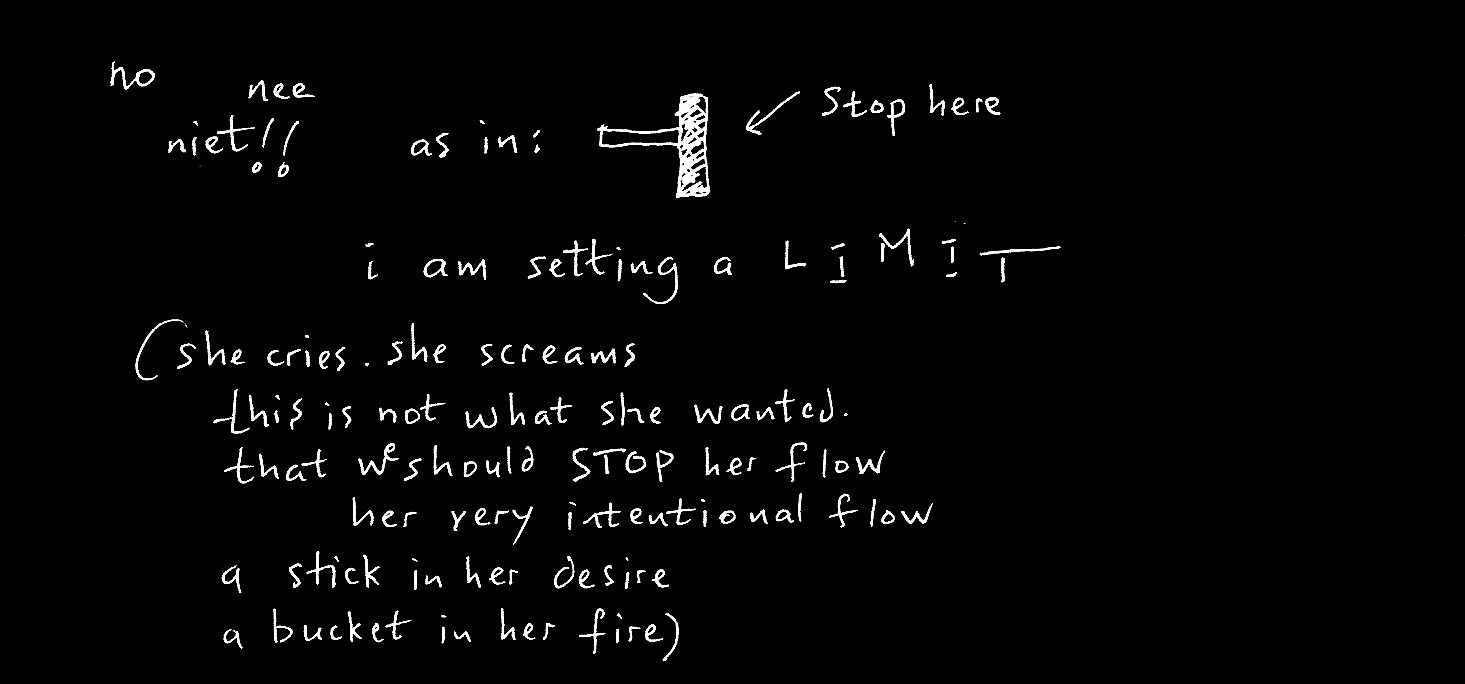 no
nee
niet!!
as in:
Stop here
i am setting a LIMIT
(she cries. she screams
this is not what she wanted.
that we should STOP her flow
her very intentional flow
a stick in her desire
a bucket in her fire)